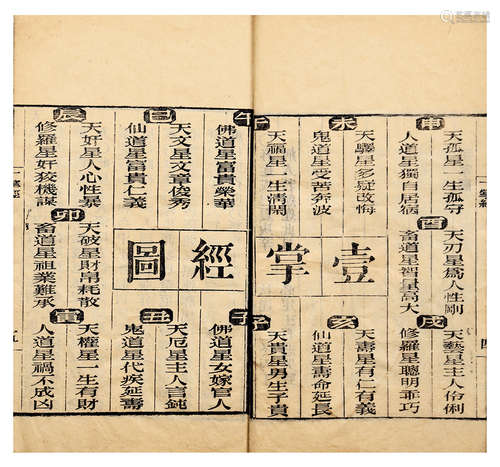 申
天孤星一生孤守
人道星獨自居宿
未
天驛星多疑改悔
鬼道星受苦奔波
午
天福星一生清閒
酉
天刃星爲人性剛
畜道星智量高大
壹掌
戌
天藝星主人伶俐
修羅星聰明乖巧
亥
天壽星有仁有義
仙道星壽命延長
子
天貴星男生子貴
四
午
佛道星富貴榮華
巳
天文星文章俊秀
仙道星富貴仁義
辰
天奸星人心性暴
修羅星奸狡機謀
經圖
卯
天破星財帛耗散
畜道星祖業難承
子
佛道星女嫁官人
丑
天厄星主人言鈍
鬼道星代疾延壽
寅
天權星一生有財
人道星禍不成凶
五